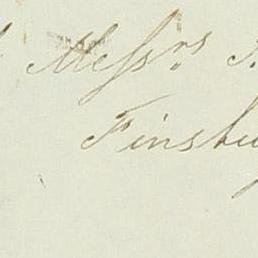 Messrs
Finsbu